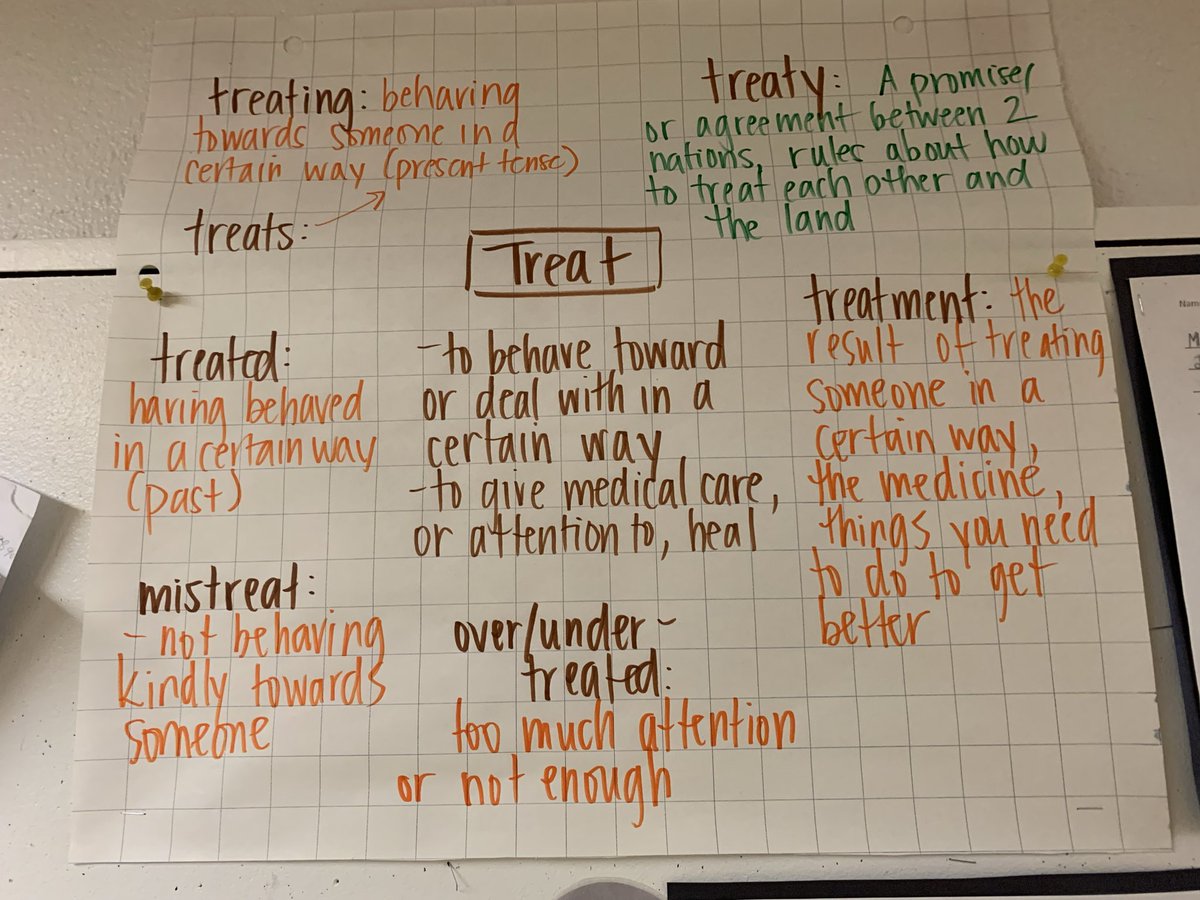 treating: behaving
towards someone in a
certain way (present tense)
treats:
treaty: A promise/
or agreement between 2
nations, rules about how
to treat each other and
the land
Treat
treated:
having behaved
in a certain way
(past)
- to behave toward
or deal with in a
certain way
- to give medical care,
or attention to, heal
treatment: the
result of treating
someone in a
certain way,
the medicine,
things you need
to do to get
better
mistreat:
- not behaving
kindly towards
someone
over/under-
treated:
too much attention
or not enough
Nam
M